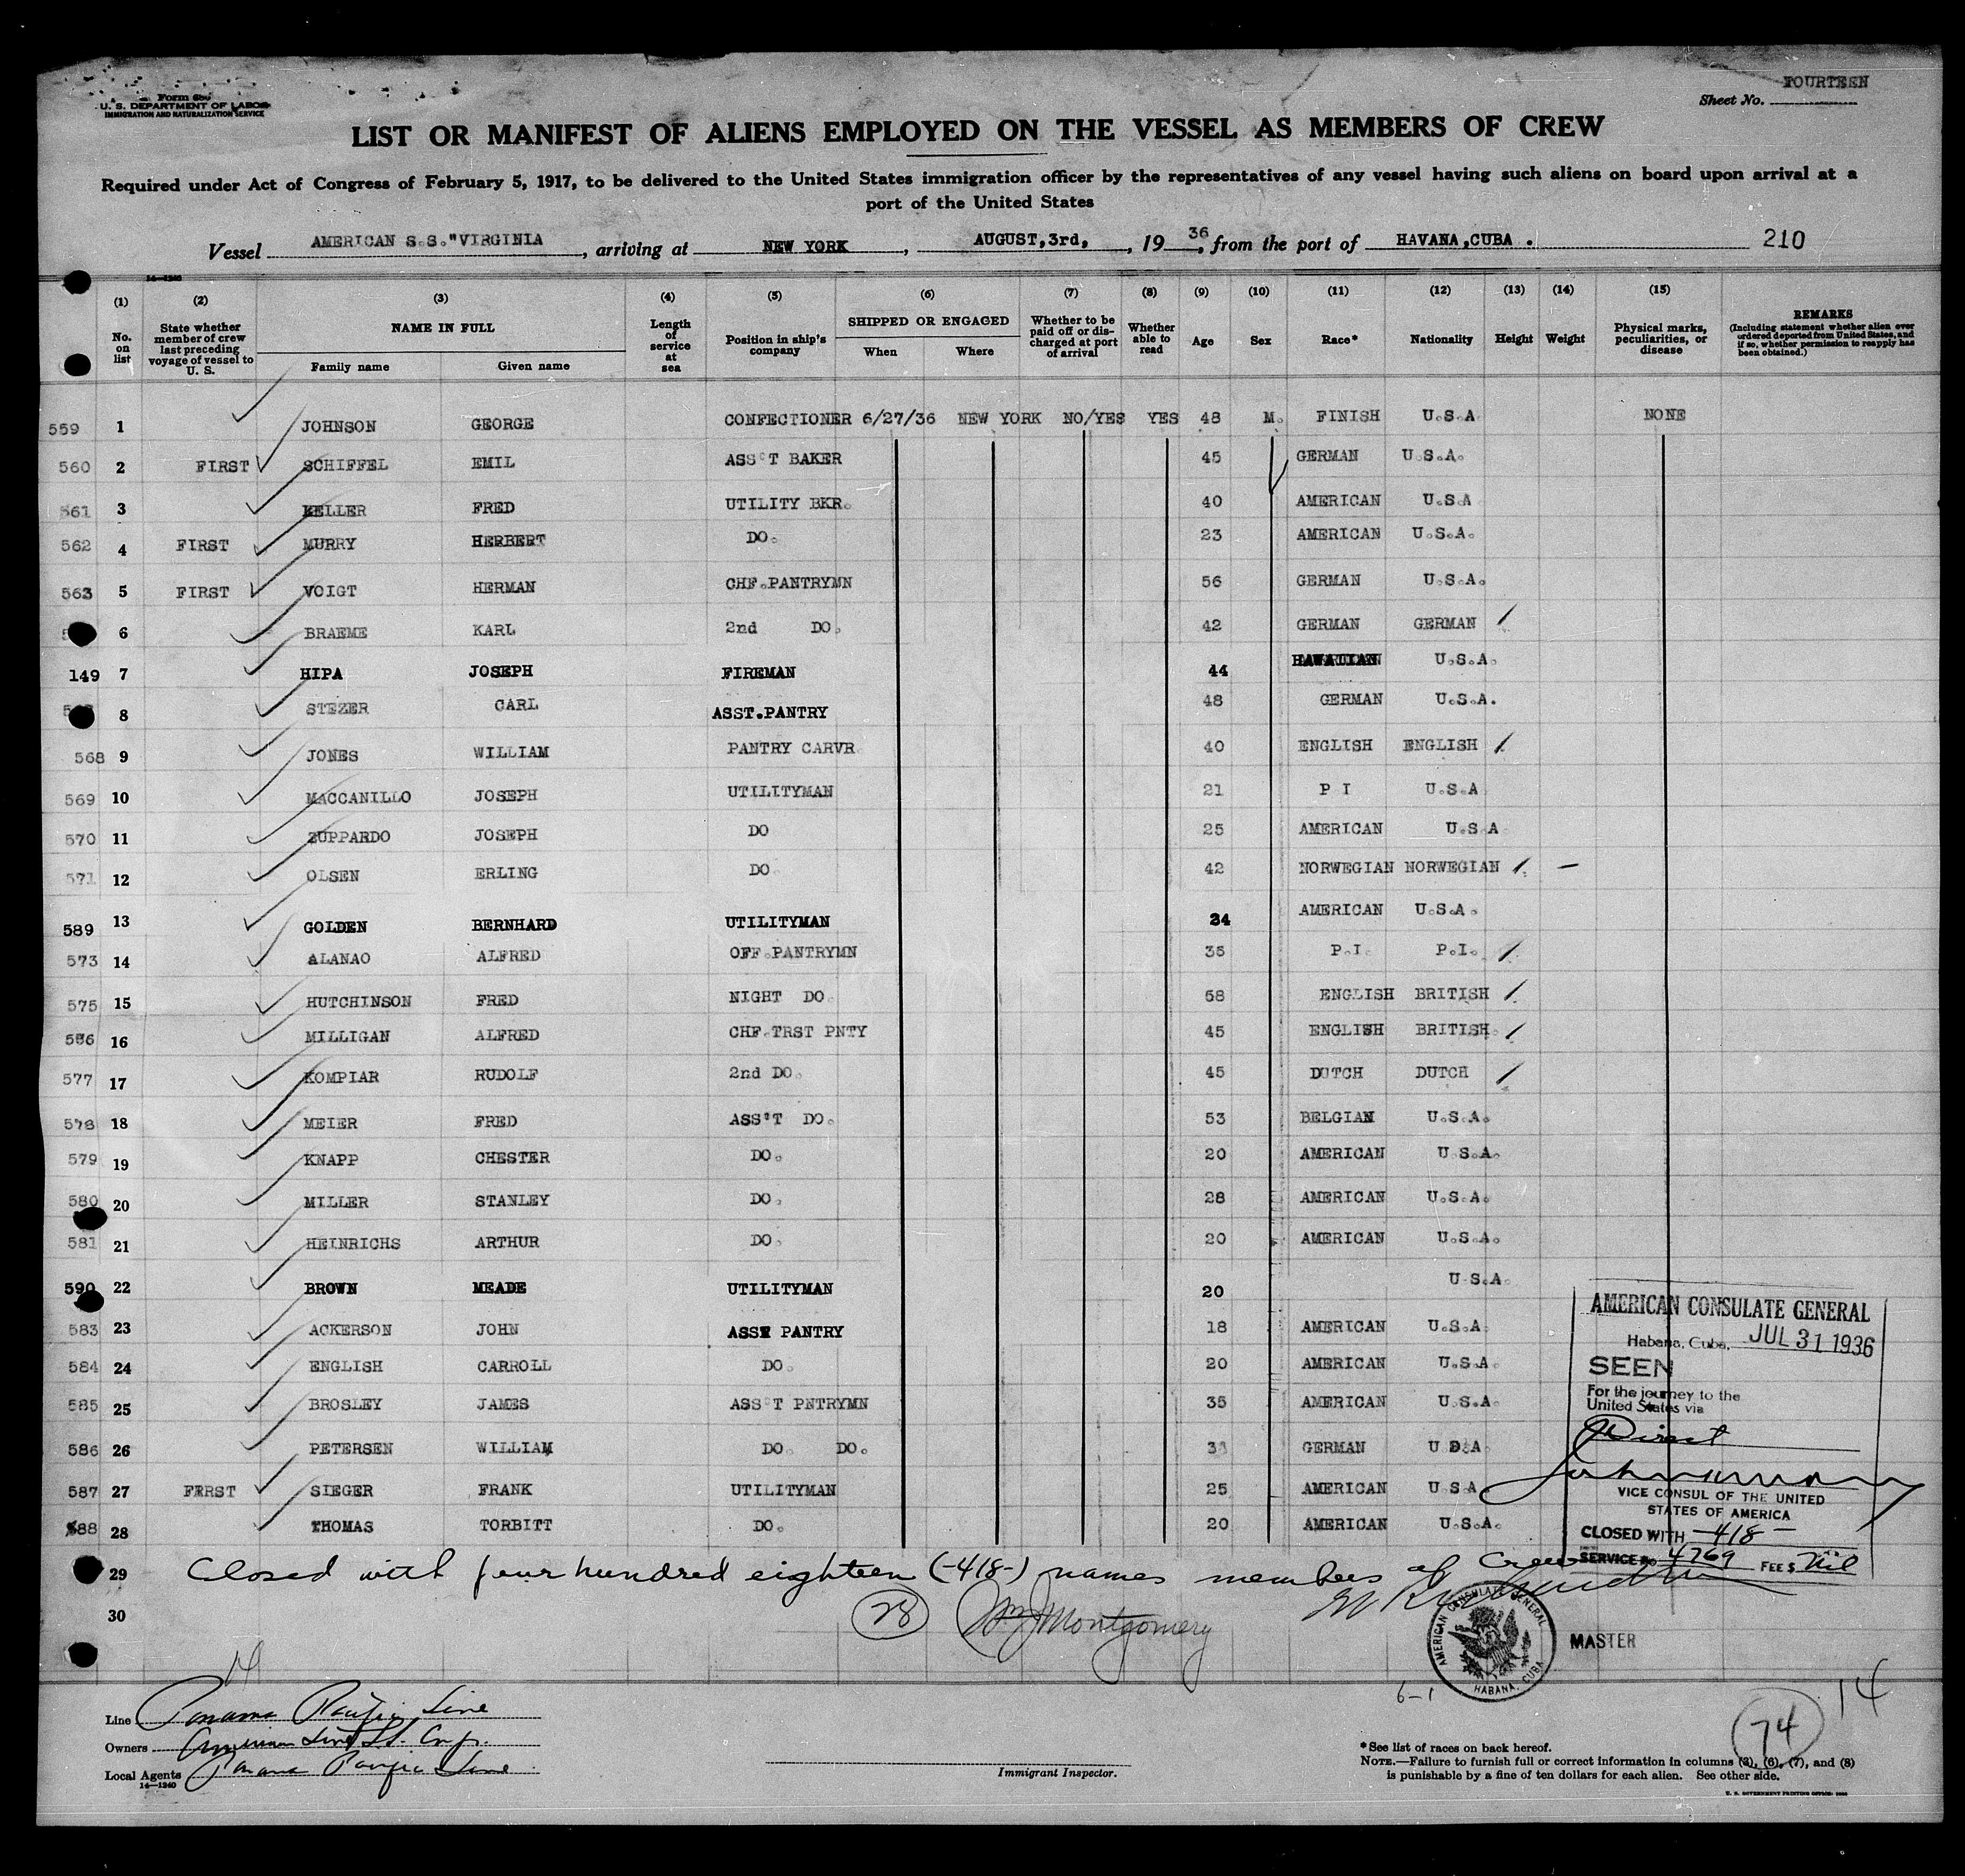 FOURTEEN
Form 680
U. S. DEPARTMENT OF LABOR
IMMIGRATION AND NATURALIZATION SERVICE
Sheet No.
LIST OR MANIFEST OF ALIENS EMPLOYED ON THE VESSEL AS MEMBERS OF CREW
Required under Act of Congress of February 5, 1917, to be delivered to the United States immigration officer by the representatives of any vessel having such aliens on board upon arrival at a
port of the United States
Vessel AMERICAN S.S."VIRGINIA, arriving at NEW YORK, AUGUST,3rd,, 1936, from the port of HAVANA,CUBA. 210
14—1240
(1) (2) (3) (4) (5) (6) (7) (8) (9) (10) (11) (12) (13) (14) (15)
No. on list
State whether member of crew last preceding voyage of vessel to U. S.
NAME IN FULL
Family name Given name
Length of service at sea
Position in ship's company
SHIPPED OR ENGAGED
When Where
Whether to be paid off or discharged at port of arrival
Whether able to read
Age Sex Race* Nationality Height Weight
Physical marks, peculiarities, or disease
REMARKS
(Including statement whether alien ever ordered deported from United States, and if so, whether permission to reapply has been obtained.)
559 1 JOHNSON GEORGE CONFECTIONER 6/27/36 NEW YORK NO/YES YES 48 M. FINISH U.S.A NONE
560 2 FIRST SCHIFFEL EMIL ASS'T BAKER 45 GERMAN U.S.A.
561 3 KELLER FRED UTILITY BKR. 40 AMERICAN U.S.A
562 4 FIRST MURRY HERBERT DO. 23 AMERICAN U.S.A.
563 5 FIRST VOIGT HERMAN CHF.PANTRYMN 56 GERMAN U.S.A.
6 BRAEME KARL 2nd DO. 42 GERMAN GERMAN
149 7 HIPA JOSEPH FIREMAN 44 HAWAIIAN U.S.A.
8 STEZER CARL ASST.PANTRY 48 GERMAN U.S.A.
568 9 JONES WILLIAM PANTRY CARVR. 40 ENGLISH ENGLISH
569 10 MACCANILLO JOSEPH UTILITYMAN 21 P I U.S.A
570 11 ZUPPARDO JOSEPH DO 25 AMERICAN U.S.A
571 12 OLSEN ERLING DO 42 NORWEGIAN NORWEGIAN —
589 13 GOLDEN BERNHARD UTILITYMAN 24 AMERICAN U.S.A.
573 14 ALANAO ALFRED OFF.PANTRYMN 35 P.I. P.I.
575 15 HUTCHINSON FRED NIGHT DO. 58 ENGLISH BRITISH
576 16 MILLIGAN ALFRED CHF.TRST PNTY 45 ENGLISH BRITISH.
577 17 KOMPIAR RUDOLF 2nd DO. 45 DUTCH DUTCH
578 18 MEIER FRED ASS'T DO. 53 BELGIAN U.S.A.
579 19 KNAPP CHESTER DO. 20 AMERICAN U.S.A.
580 20 MILLER STANLEY DO. 28 AMERICAN U.S.A.
581 21 HEINRICHS ARTHUR DO. 20 AMERICAN U.S.A.
590 22 BROWN MEADE UTILITYMAN 20 U.S.A.
583 23 ACKERSON JOHN ASST PANTRY 18 AMERICAN U.S.A
584 24 ENGLISH CARROLL DO. 20 AMERICAN U.S.A.
585 25 BROSLEY JAMES ASS'T PNTRYMN 35 AMERICAN U.S.A.
586 26 PETERSEN WILLIAM DO. DO. GERMAN
587 27 SIEGER FRANK UTILITYMAN 25 AMERICAN U S A
588 28 THOMAS TORBITT DO. 20 AMERICAN U.S.A.
AMERICAN CONSULATE GENERAL
Habana, Cuba, JUL 31 1936
SEEN
For the journey to the
United States via
Direct
VICE CONSUL OF THE UNITED
STATES OF AMERICA
CLOSED WITH —418—
SERVICE No 4769 FEE $ Nil
29 Closed with four hundred eighteen (-418-) names members of Crew
30 28 Wm J Montgomery
AMERICAN CONSULATE GENERAL HABANA, CUBA
MASTER
14
6-1
74 14
Line Panama Pacific Line
Owners American Line SS. Corp.
Local Agents Panama Pacific Line
14—1240
Immigrant Inspector.
*See list of races on back hereof.
NOTE.—Failure to furnish full or correct information in columns (3), (6), (7), and (8)
is punishable by a fine of ten dollars for each alien. See other side.
U. S. GOVERNMENT PRINTING OFFICE